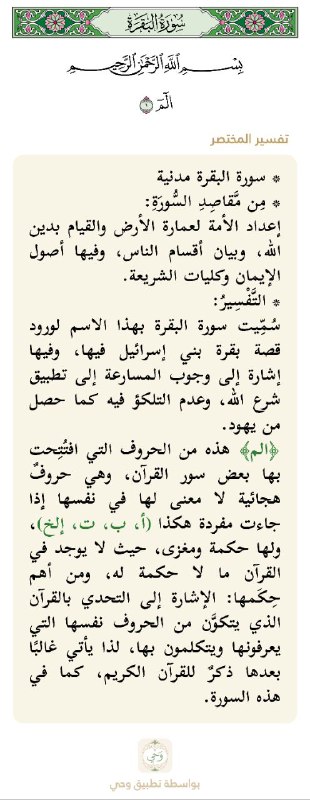 سُورَةُ البَقَرَةِ
بِسْمِ اللَّهِ الرَّحْمَٰنِ الرَّحِيمِ
الٓمٓ ١
تفسير المختصر
* سورة البقرة مدنية
* مِن مَّقاصِدِ السُّورَةِ:
إعداد الأمة لعمارة الأرض والقيام بدين
الله، وبيان أقسام الناس، وفيها أصول
الإيمان وكليات الشريعة.
* التَّفْسِيرُ:
سُمِّيت سورة البقرة بهذا الاسم لورود
قصة بقرة بني إسرائيل فيها، وفيها
إشارة إلى وجوب المسارعة إلى تطبيق
شرع الله، وعدم التلكؤ فيه كما حصل
من يهود.
﴿الم﴾ هذه من الحروف التي افتُتِحت
بها بعض سور القرآن، وهي حروفٌ
هجائية لا معنى لها في نفسها إذا
جاءت مفردة هكذا (أ، ب، ت، إلخ)،
ولها حكمة ومغزى، حيث لا يوجد في
القرآن ما لا حكمة له، ومن أهم
حِكَمها: الإشارة إلى التحدي بالقرآن
الذي يتكوَّن من الحروف نفسها التي
يعرفونها ويتكلمون بها، لذا يأتي غالبًا
بعدها ذكرٌ للقرآن الكريم، كما في
هذه السورة.
وَحْي
بواسطة تطبيق وحي